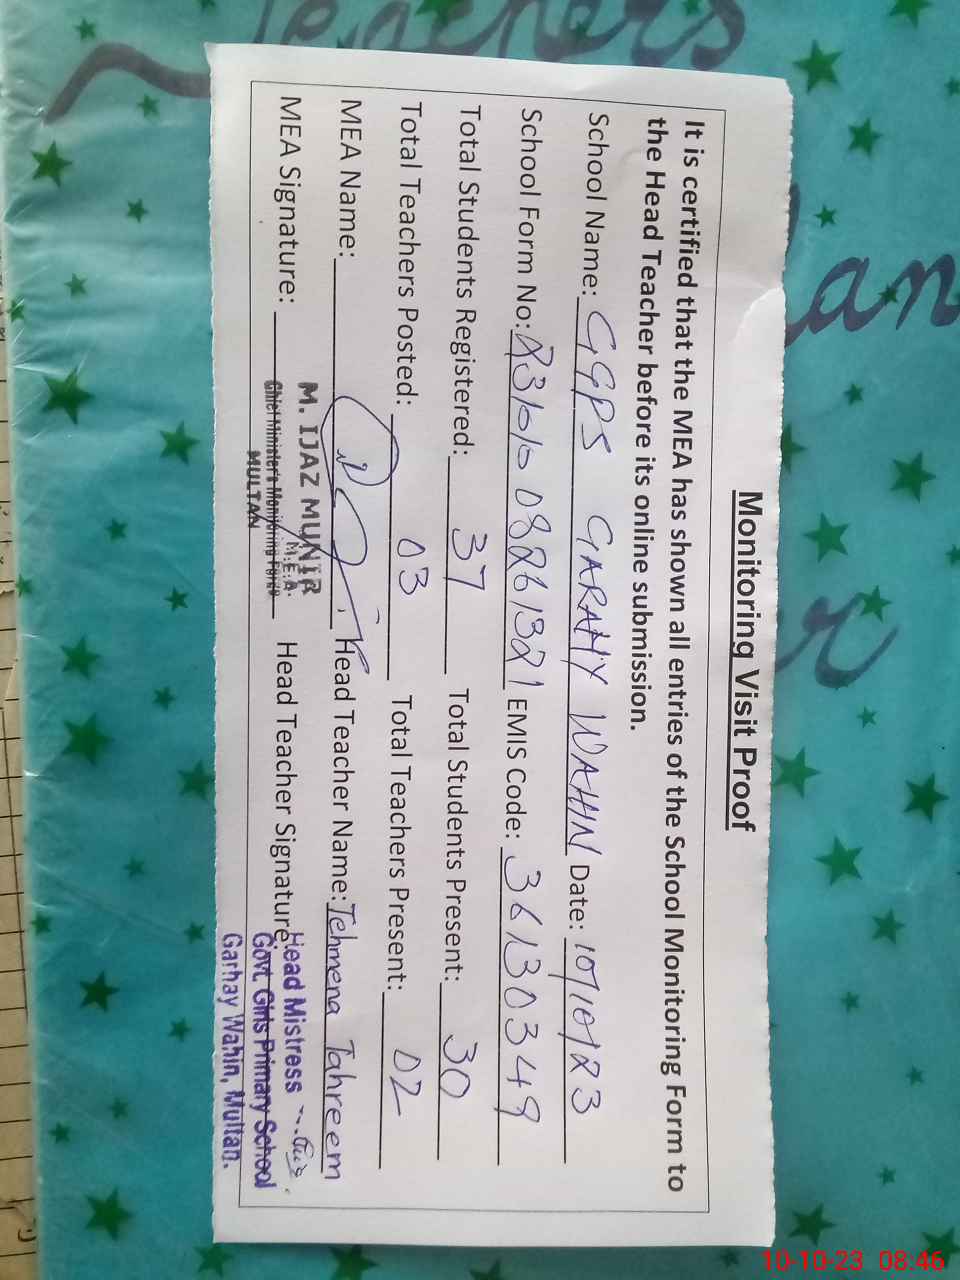 Teachers
Monitoring Visit Proof
It is certified that the MEA has shown all entries of the School Monitoring Form to
the Head Teacher before its online submission.
School Name: GGPS GARAHY WAHN Date: 10/10/23
School Form No: 23101008261321 EMIS Code: 36130349
Total Students Registered: 37 Total Students Present: 30
Total Teachers Posted: 03 Total Teachers Present: 02
MEA Name: Head Teacher Name: Tehmena Tahreem
MEA Signature: Head Teacher Signature:
M. IJAZ MUNIR
M.E.A.
Chief Minister's Monitoring Force
MULTAN
Head Mistress
Govt. Girls Primary School
Garhay Wahin, Multan.
10-10-23 08:46